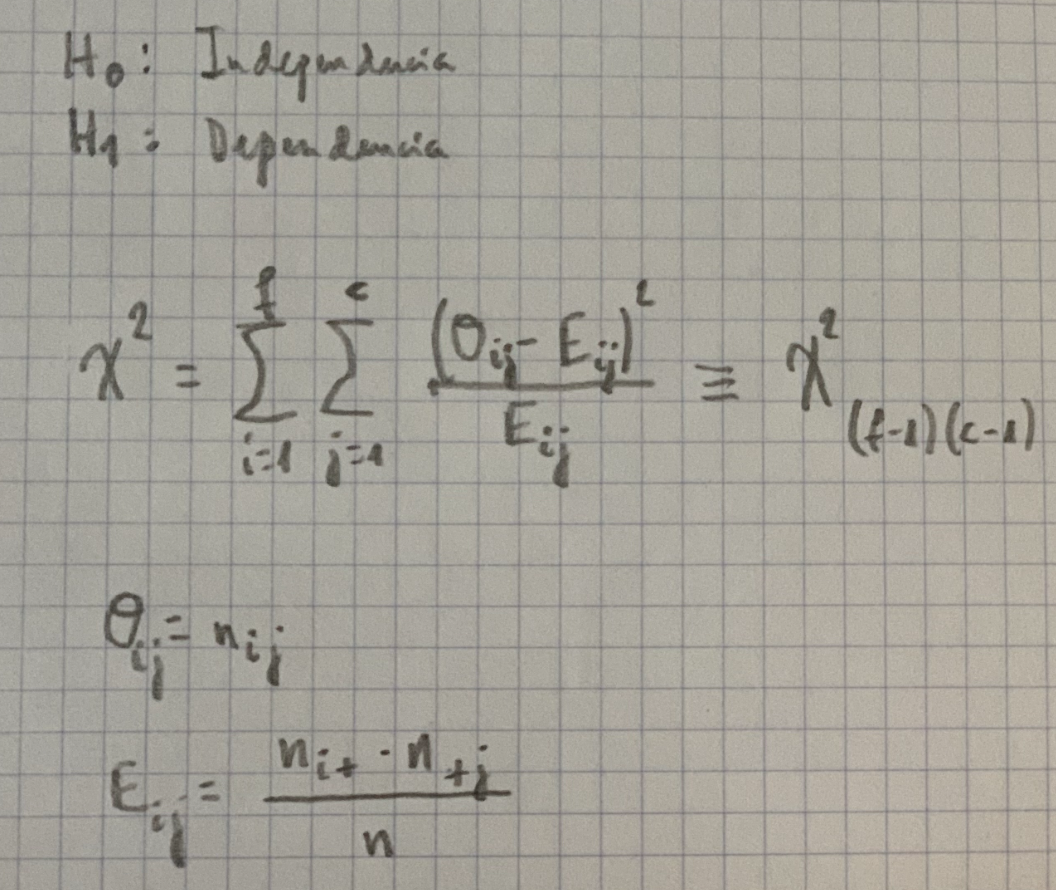 H₀: Independencia
H₁: Dependencia
χ² = ∑_{i=1}^{f} ∑_{j=1}^{c} (O_{ij} - E_{ij})² / E_{ij} ≡ χ²_{(f-1)(c-1)}
O_{ij} = n_{ij}
E_{ij} = n_{i+} · n_{+j} / n